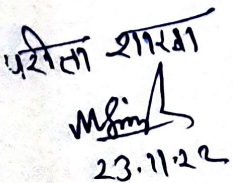 परीक्षा शाखा
23.11.22